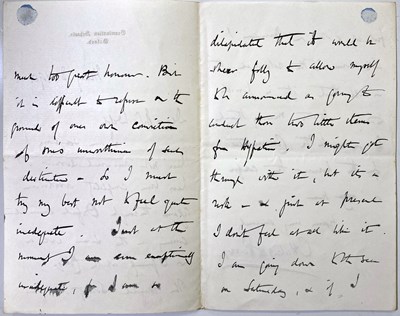 much too great honour. But
it is difficult to refuse on the
ground of ones own conviction
of one's unworthiness of such
distinction - So I must
try my best not to feel quite
inadequate. Just at the
moment I am even exceptionally
inadequate, for I am so
dilapidated that it would be
sheer folly to allow myself
to be announced as going to
conduct those two little items
from Hypatia. I might get
through with it, but it's a
risk - & just at present
I don't feel at all like it.
I am going down to the sea
on Saturday, & if I